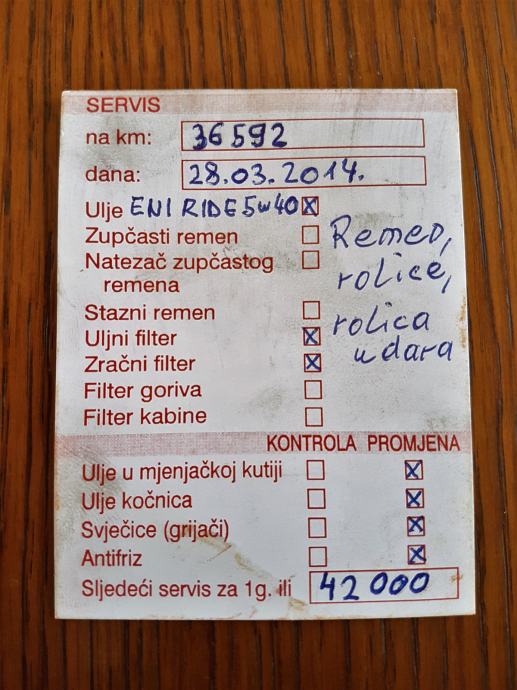 SERVIS
na km: 36592
dana: 28.03.2014.
Ulje ENI RIDE 5w40 ☒
Zupčasti remen ☐ Remen,
Natezač zupčastog ☐ rolice,
remena
Stazni remen ☐ rolica
Uljni filter ☒ udara
Zračni filter ☒
Filter goriva ☐
Filter kabine ☐
KONTROLA PROMJENA
Ulje u mjenjačkoj kutiji ☐ ☒
Ulje kočnica ☐ ☒
Svječice (grijači) ☐ ☒
Antifriz ☐ ☒
Sljedeći servis za 1g. ili 42000